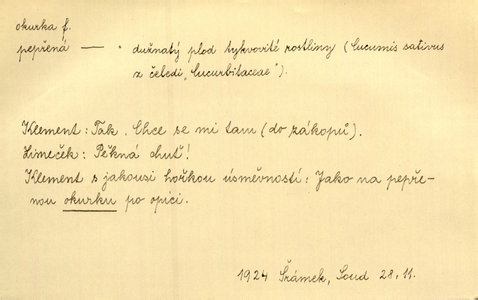 okurka f.
pepřená — " dužnatý plod tykvovité rostliny (Cucumis sativus
z čeledi „Cucurbitaceae").
Klement: Tak. Chce se mi tam (do zákopů).
Limeček: Pěkná chuť!
Klement s jakousi hořkou úsměvností: Jako na pepře-
nou okurku po opici.
1924 Šrámek, Soud 28, 11.